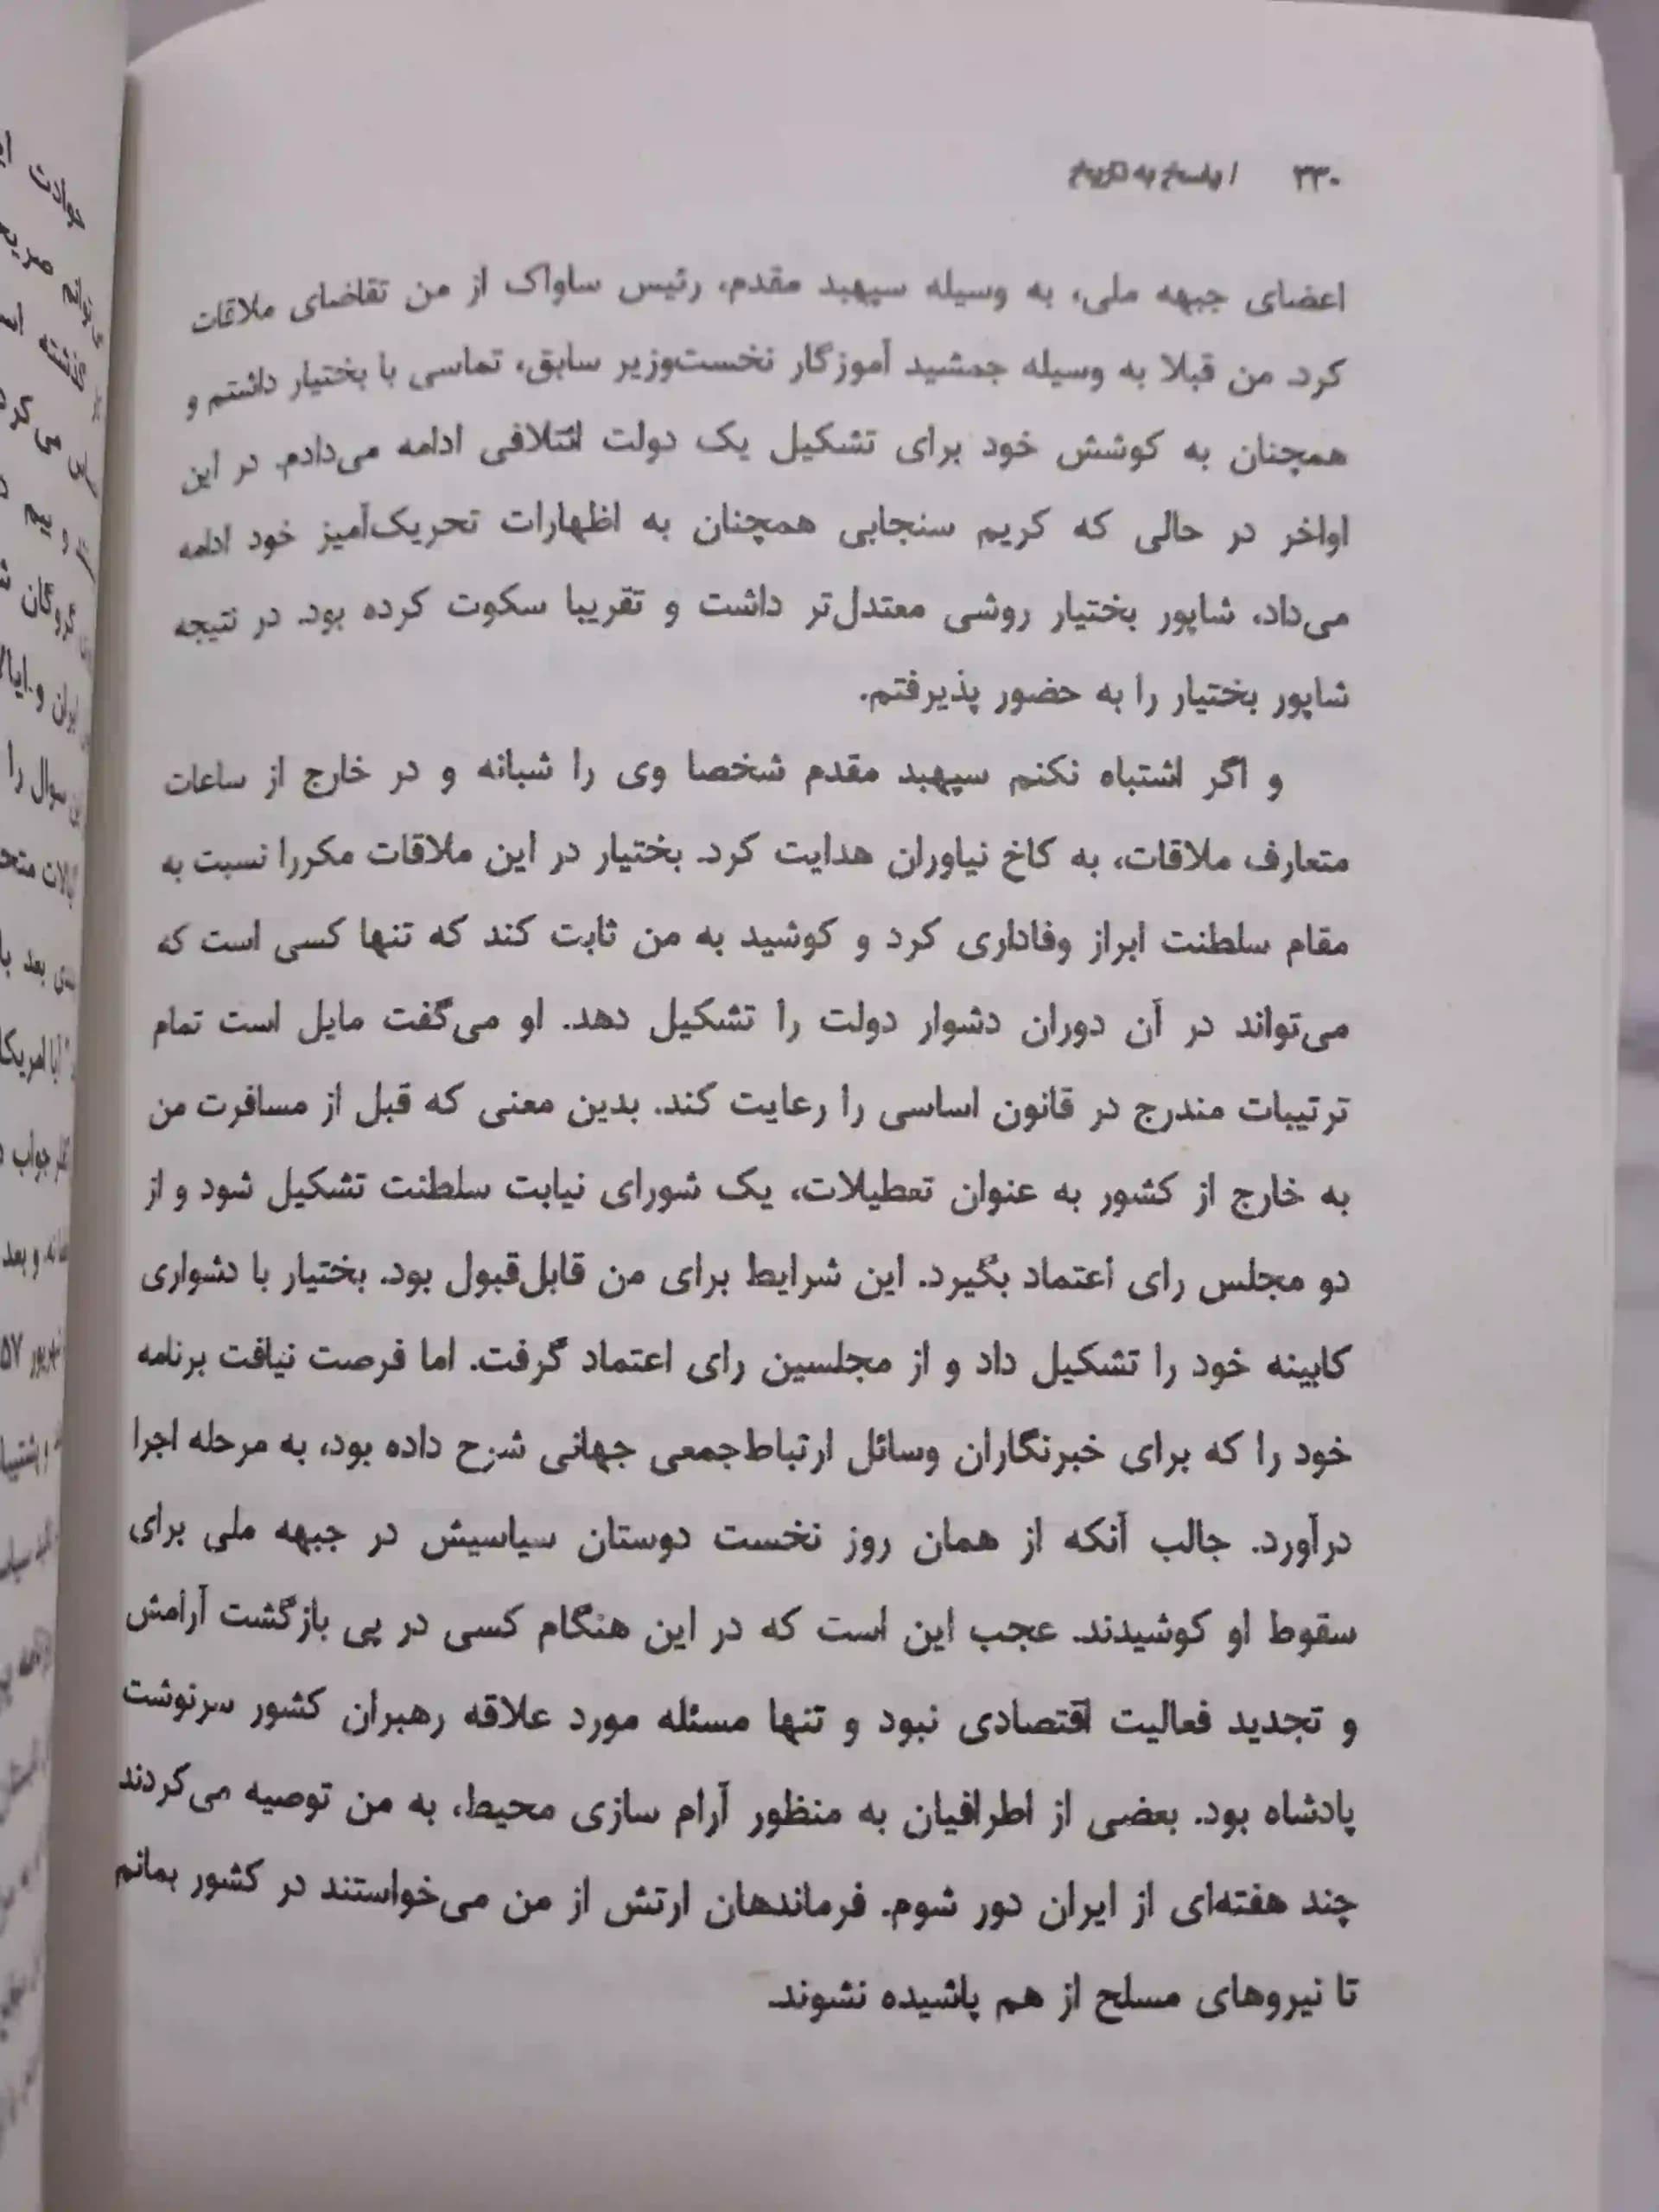 ۳۳۰ / پاسخ به تاریخ
اعضای جبهه ملی، به وسیله سپهبد مقدم، رئیس ساواک از من تقاضای ملاقات
کرد. من قبلا به وسیله جمشید آموزگار نخست‌وزیر سابق، تماسی با بختیار داشتم و
همچنان به کوشش خود برای تشکیل یک دولت ائتلافی ادامه می‌دادم. در این
اواخر در حالی که کریم سنجابی همچنان به اظهارات تحریک‌آمیز خود ادامه
می‌داد، شاپور بختیار روشی معتدل‌تر داشت و تقریبا سکوت کرده بود. در نتیجه
شاپور بختیار را به حضور پذیرفتم.
و اگر اشتباه نکنم سپهبد مقدم شخصا وی را شبانه و در خارج از ساعات
متعارف ملاقات، به کاخ نیاوران هدایت کرد. بختیار در این ملاقات مکررا نسبت به
مقام سلطنت ابراز وفاداری کرد و کوشید به من ثابت کند که تنها کسی است که
می‌تواند در آن دوران دشوار دولت را تشکیل دهد. او می‌گفت مایل است تمام
ترتیبات مندرج در قانون اساسی را رعایت کند. بدین معنی که قبل از مسافرت من
به خارج از کشور به عنوان تعطیلات، یک شورای نیابت سلطنت تشکیل شود و از
دو مجلس رای اعتماد بگیرد. این شرایط برای من قابل‌قبول بود. بختیار با دشواری
کابینه خود را تشکیل داد و از مجلسین رای اعتماد گرفت. اما فرصت نیافت برنامه
خود را که برای خبرنگاران وسائل ارتباط‌جمعی جهانی شرح داده بود، به مرحله اجرا
درآورد. جالب آنکه از همان روز نخست دوستان سیاسیش در جبهه ملی برای
سقوط او کوشیدند. عجب این است که در این هنگام کسی در پی بازگشت آرامش
و تجدید فعالیت اقتصادی نبود و تنها مسئله مورد علاقه رهبران کشور سرنوشت
پادشاه بود. بعضی از اطرافیان به منظور آرام سازی محیط، به من توصیه می‌کردند
چند هفته‌ای از ایران دور شوم. فرماندهان ارتش از من می‌خواستند در کشور بمانم
تا نیروهای مسلح از هم پاشیده نشوند.